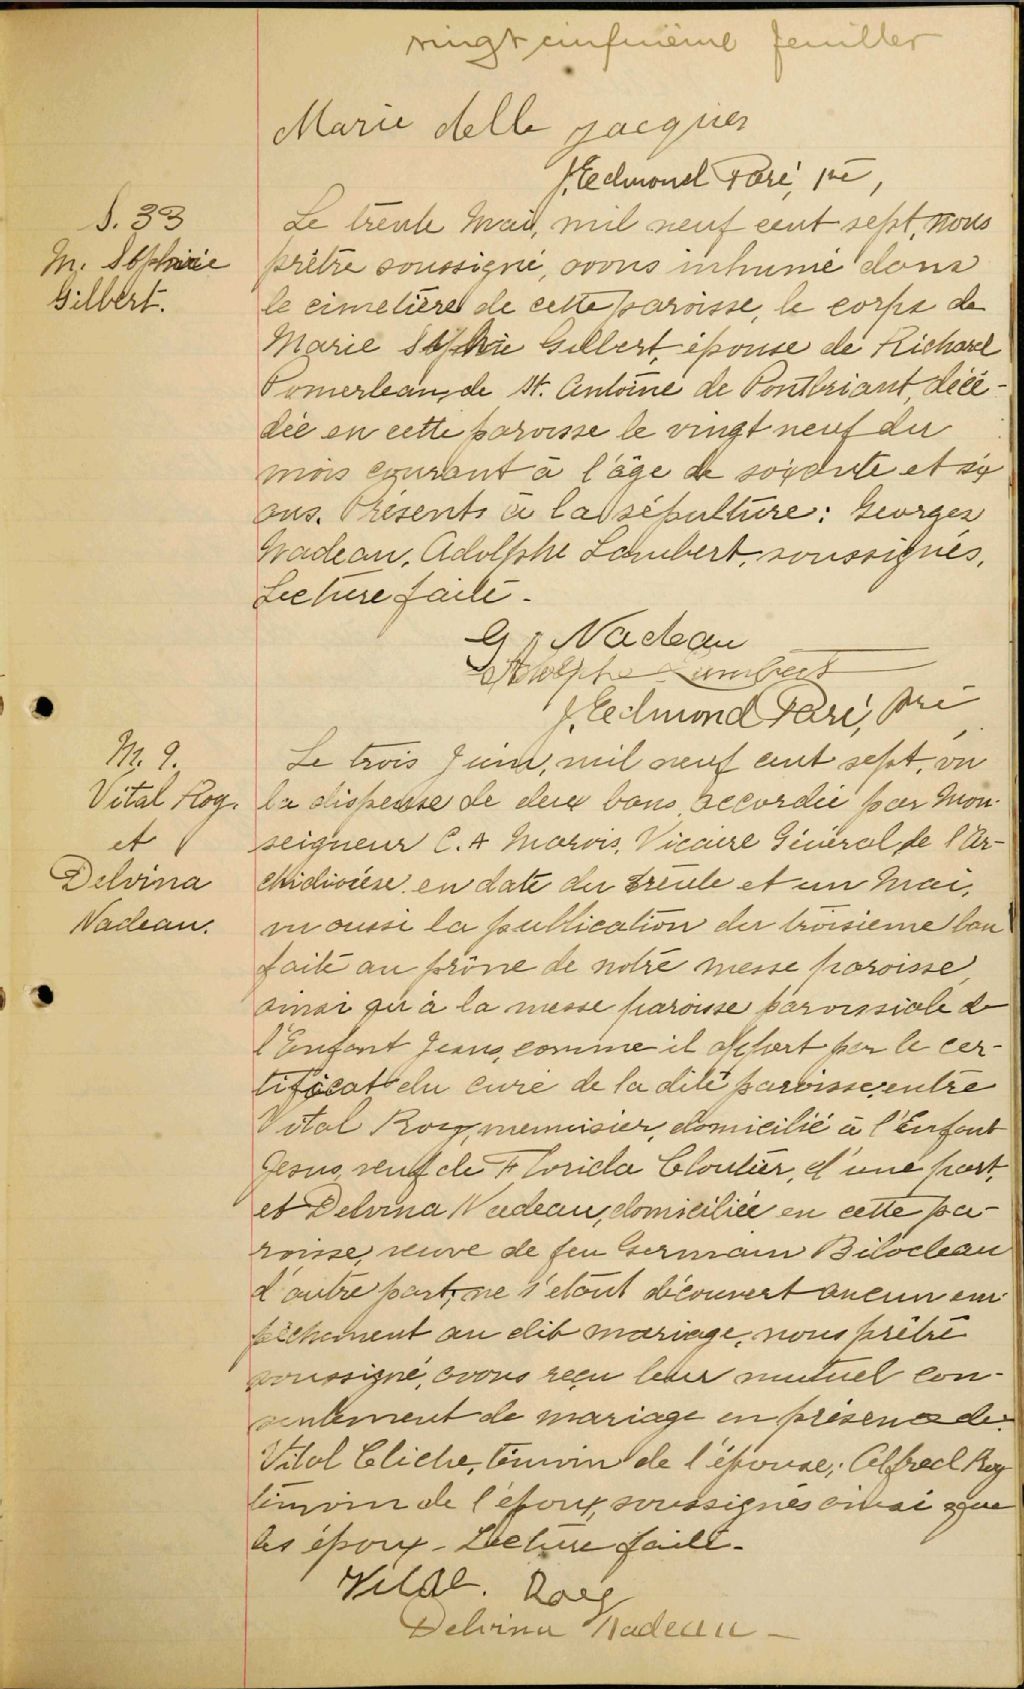 vingt cinquième feuillet
Marie delle Jacques
J. Edmond Paré, ptre,
S. 33
M. Sophie
Gilbert.
Le trente Mai, mil neuf cent sept, nous
prêtre soussigné, avons inhumé dans
le cimetière de cette paroisse, le corps de
Marie Sophie Gilbert, épouse de Richard
Pomerleau, de St. Antoine de Pontbriant, décé-
dée en cette paroisse le vingt neuf du
mois courant à l'âge de soixante et six
ans. Présents à la sépulture: Georges
Nadeau, Adolphe Lambert, soussignés,
Lecture faite.
G. Nadeau
Adolphe Lambert
J. Edmond Paré, ptre
M. 9.
Vital Roy.
et
Delvina
Nadeau.
Le trois Juin, mil neuf cent sept, vu
la dispense de deux bans accordée par Mon-
seigneur C. A Marois, Vicaire Général de l'Ar-
chidiocèse en date du trente et un Mai,
vu aussi la publication du troisième ban
faite au prône de notre messe paroisse,
ainsi qu'à la messe paroisse paroissiale de
l'Enfant Jesus, comme il appert par le cer-
tificat du curé de la dite paroisse, entre
Vital Roy, menuisier, domicilié à l'Enfant
Jesus, veuf de Florida Cloutier, d'une part,
et Delvina Nadeau, domiciliée en cette pa-
roisse, veuve de feu Germain Bilodeau
d'autre part; ne s'étant découvert aucun em-
pêchement au dit mariage, nous prêtre
soussigné, avons reçu leur mutuel con-
sentement de mariage en présence de
Vital Cliche, témoin de l'épouse; Alfred Roy
témoin de l'époux, soussignés ainsi que
les époux - Lecture faite.
Vital Roy
Delvina Nadeau